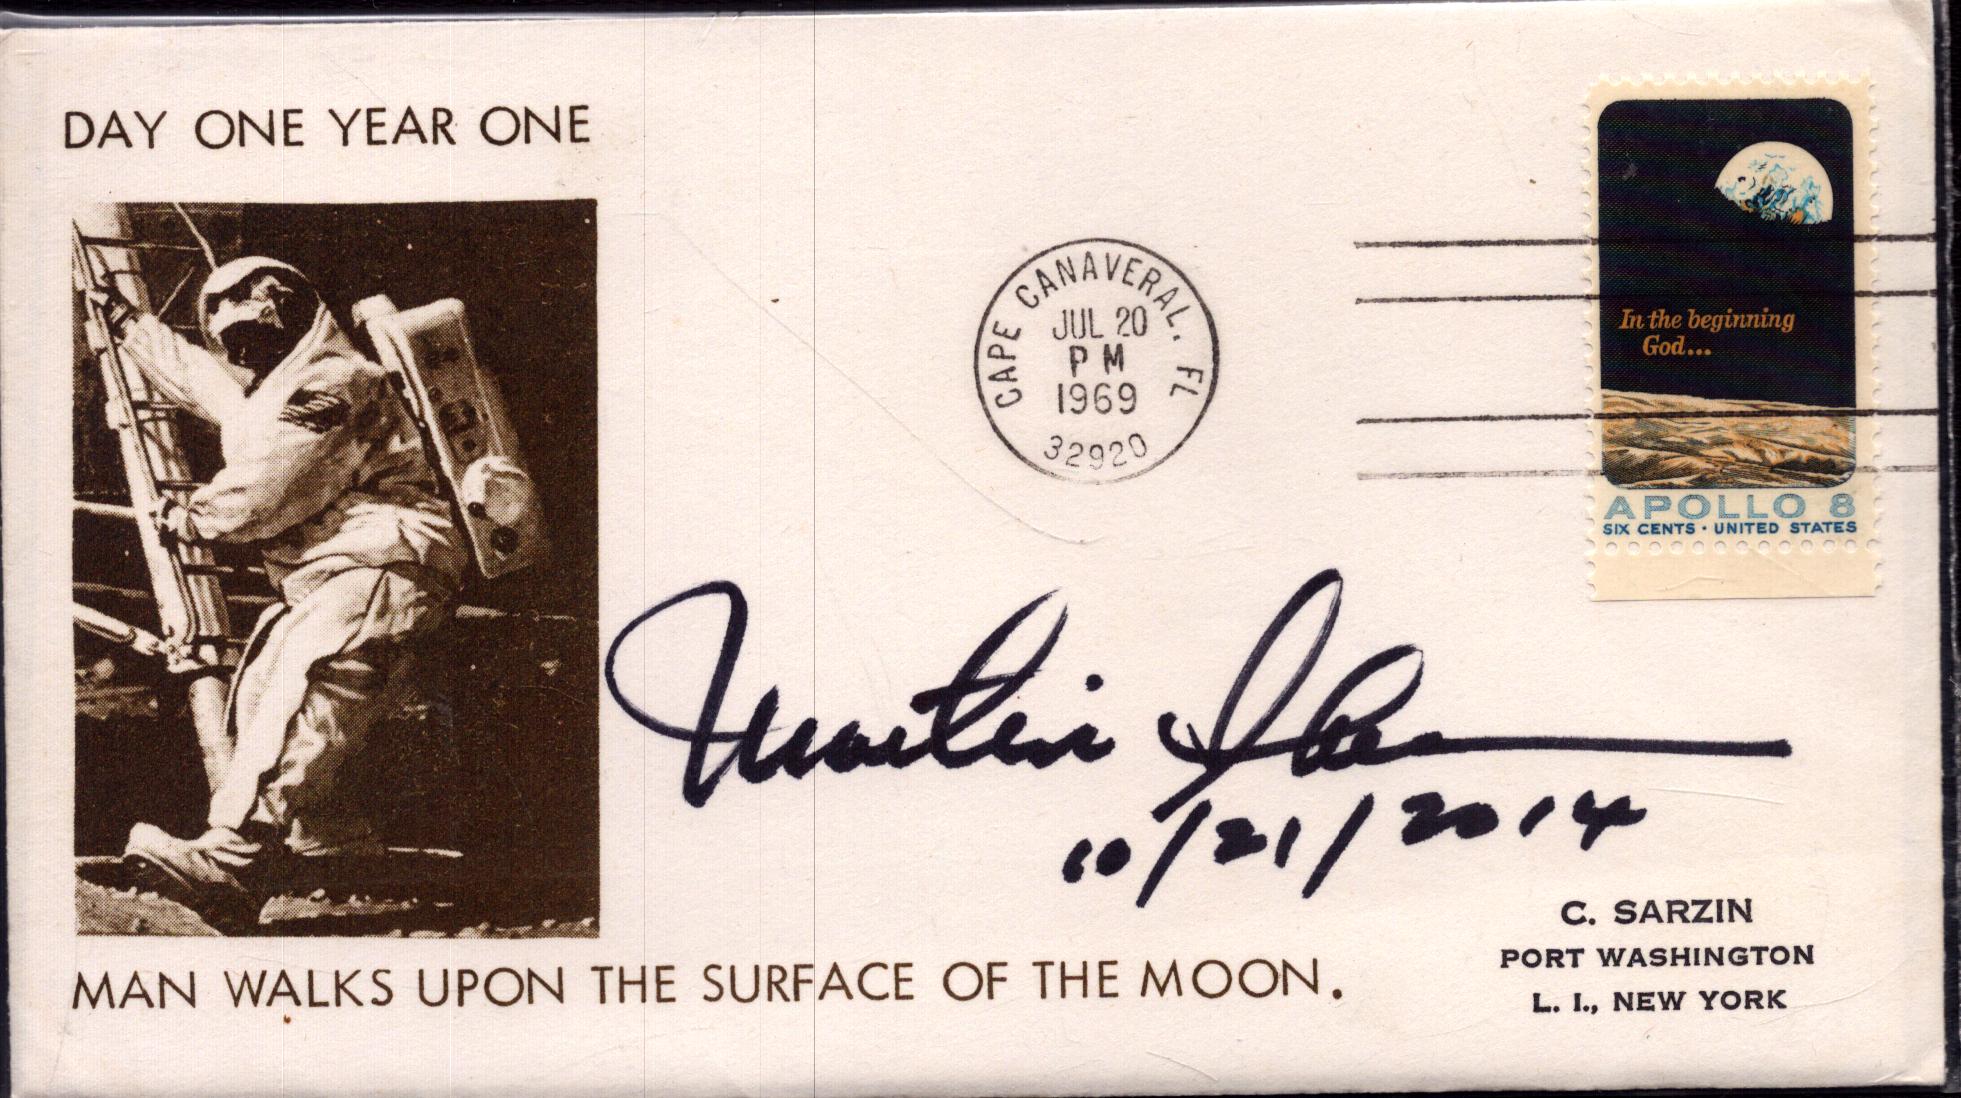 DAY ONE YEAR ONE
CAPE CANAVERAL, FL
JUL 20
PM
1969
32920
In the beginning
God...
APOLLO 8
SIX CENTS · UNITED STATES
Martin
10/21/2014
C. SARZIN
PORT WASHINGTON
L. I., NEW YORK
MAN WALKS UPON THE SURFACE OF THE MOON.